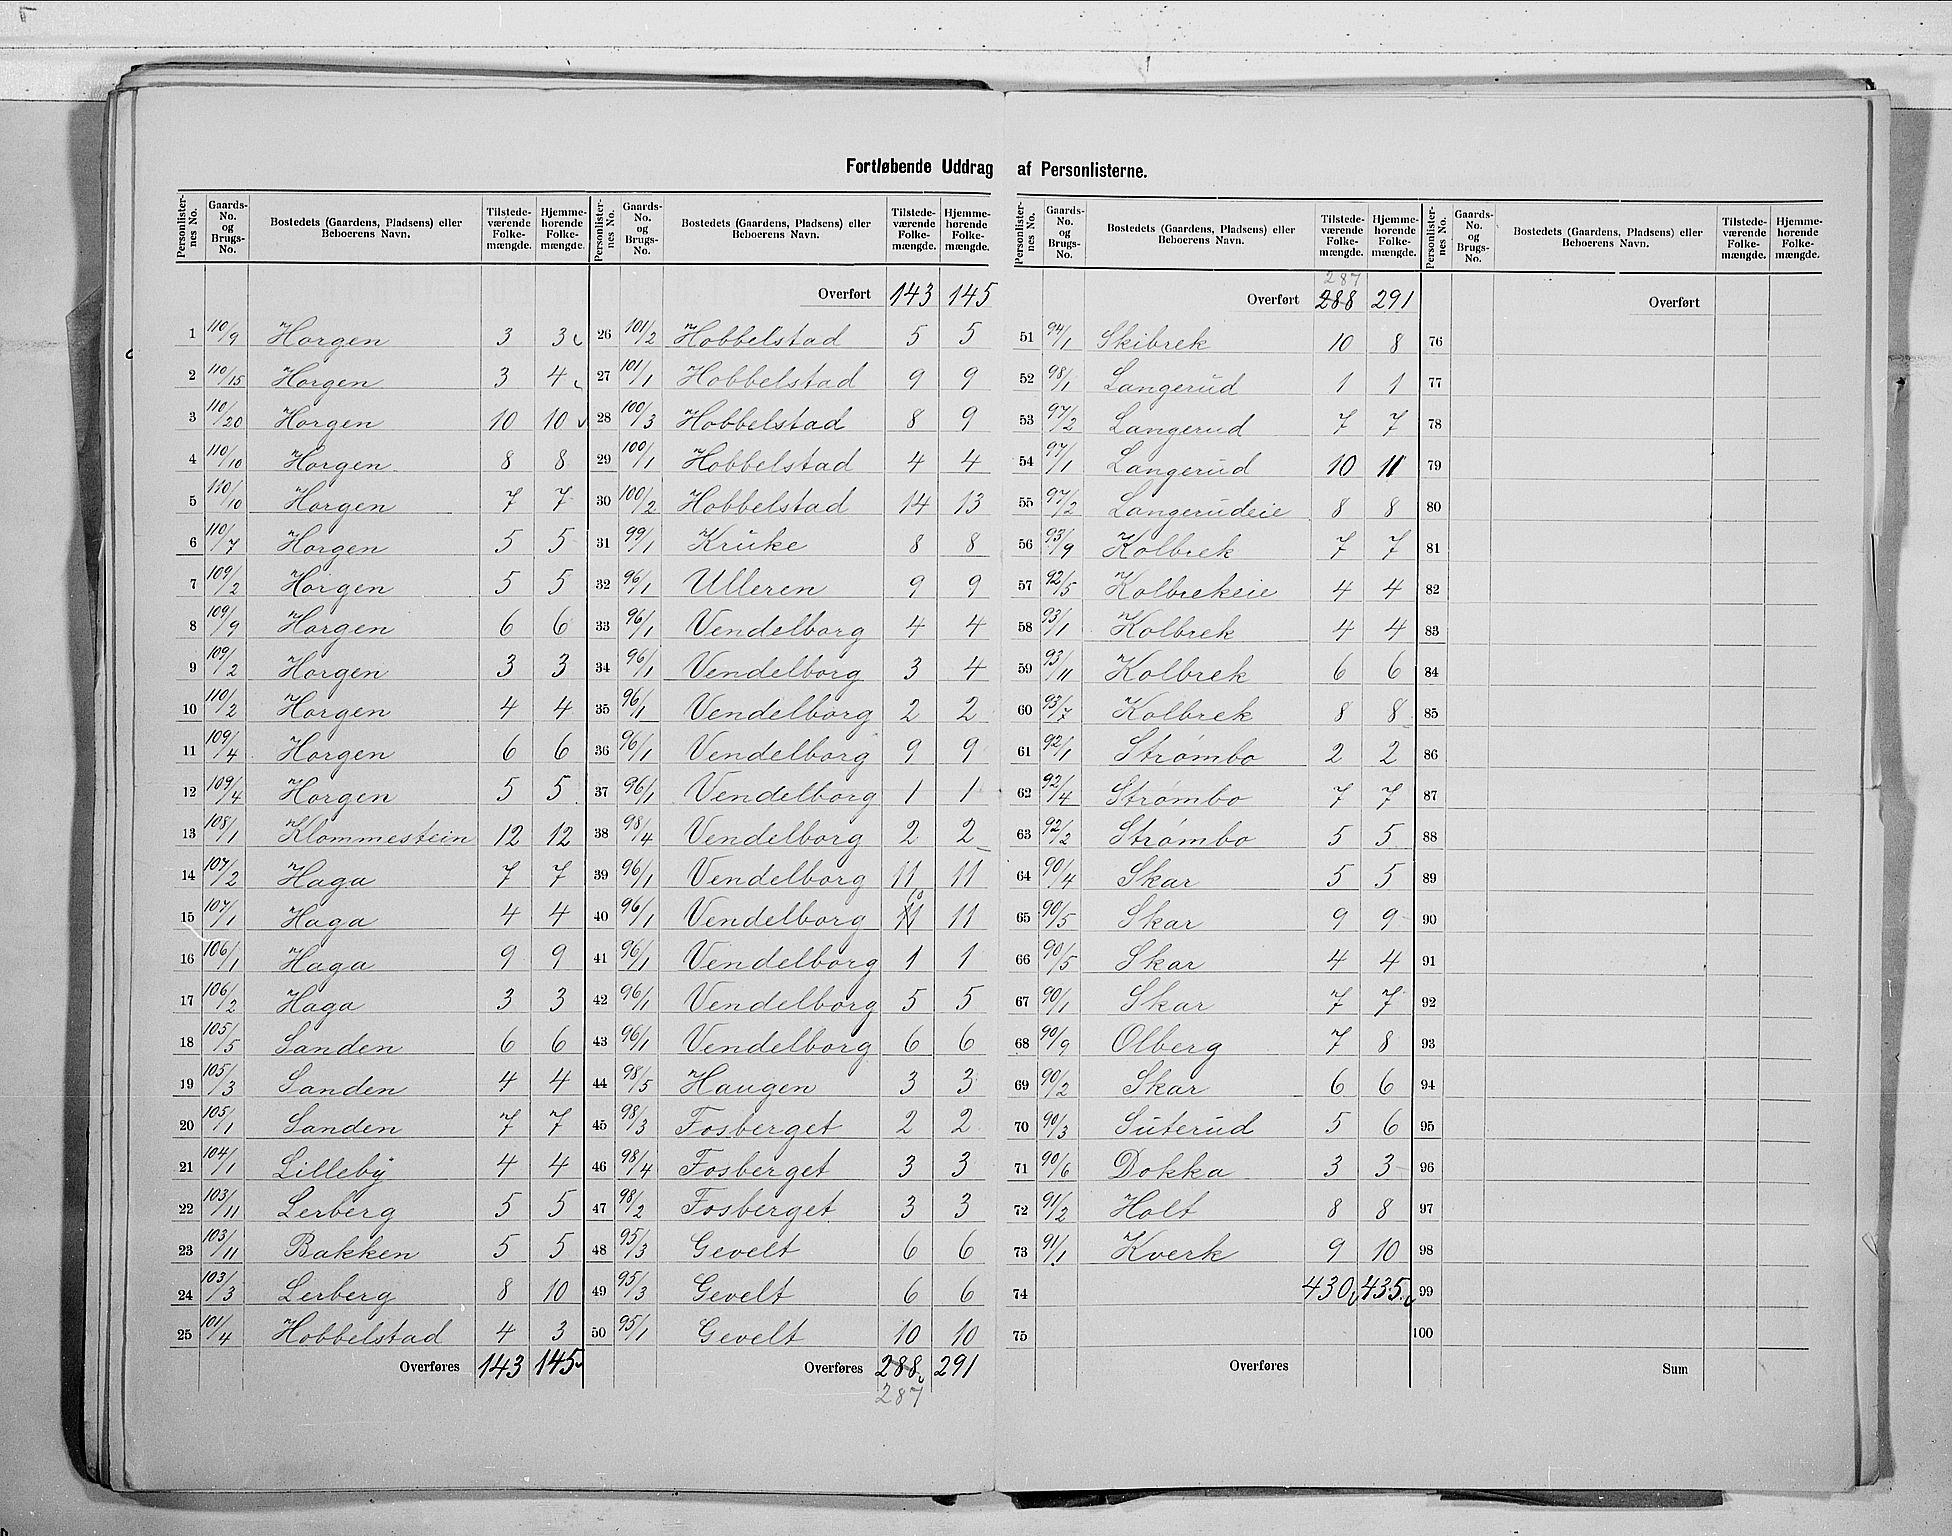 Fortløbende Uddrag af Personlisterne.
Personlisternes No. Gaards-No. og Brugs-No. Bostedets (Gaardens, Pladsens) eller Beboerens Navn. Tilstedeværende Folkemængde. Hjemmehørende Folkemængde.
1 110/9 Horgen 3 3
2 110/15 Horgen 3 4
3 110/20 Horgen 10 10
4 110/10 Horgen 8 8
5 110/10 Horgen 7 7
6 110/7 Horgen 5 5
7 109/2 Horgen 5 5
8 109/9 Horgen 6 6
9 109/2 Horgen 3 3
10 110/2 Horgen 4 4
11 109/4 Horgen 6 6
12 109/4 Horgen 5 5
13 108/1 Klommestein 12 12
14 107/2 Haga 7 7
15 107/1 Haga 4 4
16 106/1 Haga 9 9
17 106/2 Haga 3 3
18 105/5 Sanden 6 6
19 105/3 Sanden 4 4
20 105/1 Sanden 7 7
21 104/1 Lilleby 4 4
22 103/11 Lerberg 5 5
23 103/11 Bakken 5 5
24 103/3 Lerberg 8 10
25 101/4 Hobbelstad 4 3
Overføres 143 145
Personlisternes No. Gaards-No. og Brugs-No. Bostedets (Gaardens, Pladsens) eller Beboerens Navn. Tilstedeværende Folkemængde. Hjemmehørende Folkemængde.
Overført 143 145
26 101/2 Hobbelstad 5 5
27 101/1 Hobbelstad 9 9
28 100/3 Hobbelstad 8 9
29 100/1 Hobbelstad 4 4
30 100/2 Hobbelstad 14 13
31 99/1 Kruke 8 8
32 96/1 Ulleren 9 9
33 96/1 Vendelborg 4 4
34 96/1 Vendelborg 3 4
35 96/1 Vendelborg 2 2
36 96/1 Vendelborg 9 9
37 96/1 Vendelborg 1 1
38 98/4 Vendelborg 2 2
39 96/1 Vendelborg 11 11
40 96/1 Vendelborg 11 10 11
41 96/1 Vendelborg 1 1
42 96/1 Vendelborg 5 5
43 96/1 Vendelborg 6 6
44 98/5 Haugen 3 3
45 98/3 Fosberget 2 2
46 98/4 Fosberget 3 3
47 98/2 Fosberget 3 3
48 95/3 Gevelt 6 6
49 95/3 Gevelt 6 6
50 95/1 Gevelt 10 10
Overføres 288 291
287
Personlisternes No. Gaards-No. og Brugs-No. Bostedets (Gaardens, Pladsens) eller Beboerens Navn. Tilstedeværende Folkemængde. Hjemmehørende Folkemængde.
287
Overført 288 291
51 94/1 Skibrek 10 8
52 98/1 Langerud 1 1
53 97/2 Langerud 7 7
54 97/1 Langerud 10 11
55 97/2 Langerudeie 8 8
56 93/9 Kolbrek 7 7
57 92/5 Kolbrekeie 4 4
58 93/1 Kolbrek 4 4
59 93/11 Kolbrek 6 6
60 93/7 Kolbrek 8 8
61 92/1 Strømbo 2 2
62 92/4 Strømbo 7 7
63 92/2 Strømbo 5 5
64 90/4 Skar 5 5
65 90/5 Skar 9 9
66 90/5 Skar 4 4
67 90/1 Skar 7 7
68 90/9 Olberg 7 8
69 90/2 Skar 6 6
70 90/3 Suterud 5 6
71 90/6 Dokka 3 3
72 91/2 Holt 8 8
73 91/1 Kverk 9 10
74 430 435
75
Overføres
Personlisternes No. Gaards-No. og Brugs-No. Bostedets (Gaardens, Pladsens) eller Beboerens Navn. Tilstedeværende Folkemængde. Hjemmehørende Folkemængde.
Overført
76
77
78
79
80
81
82
83
84
85
86
87
88
89
90
91
92
93
94
95
96
97
98
99
100
Sum